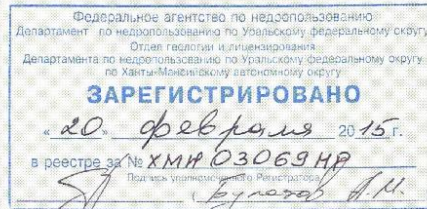 Федеральное агентство по недропользованию
Департамент по недропользованию по Уральскому федеральному округу
Отдел геологии и лицензирования
Департамента по недропользованию по Уральскому федеральному округу
по Ханты-Мансийскому автономному округу
ЗАРЕГИСТРИРОВАНО
«20» февраля 2015 г.
в реестре за № ХМН 03069 НР
Подпись уполномоченного Регистратора
Булатов А.М.